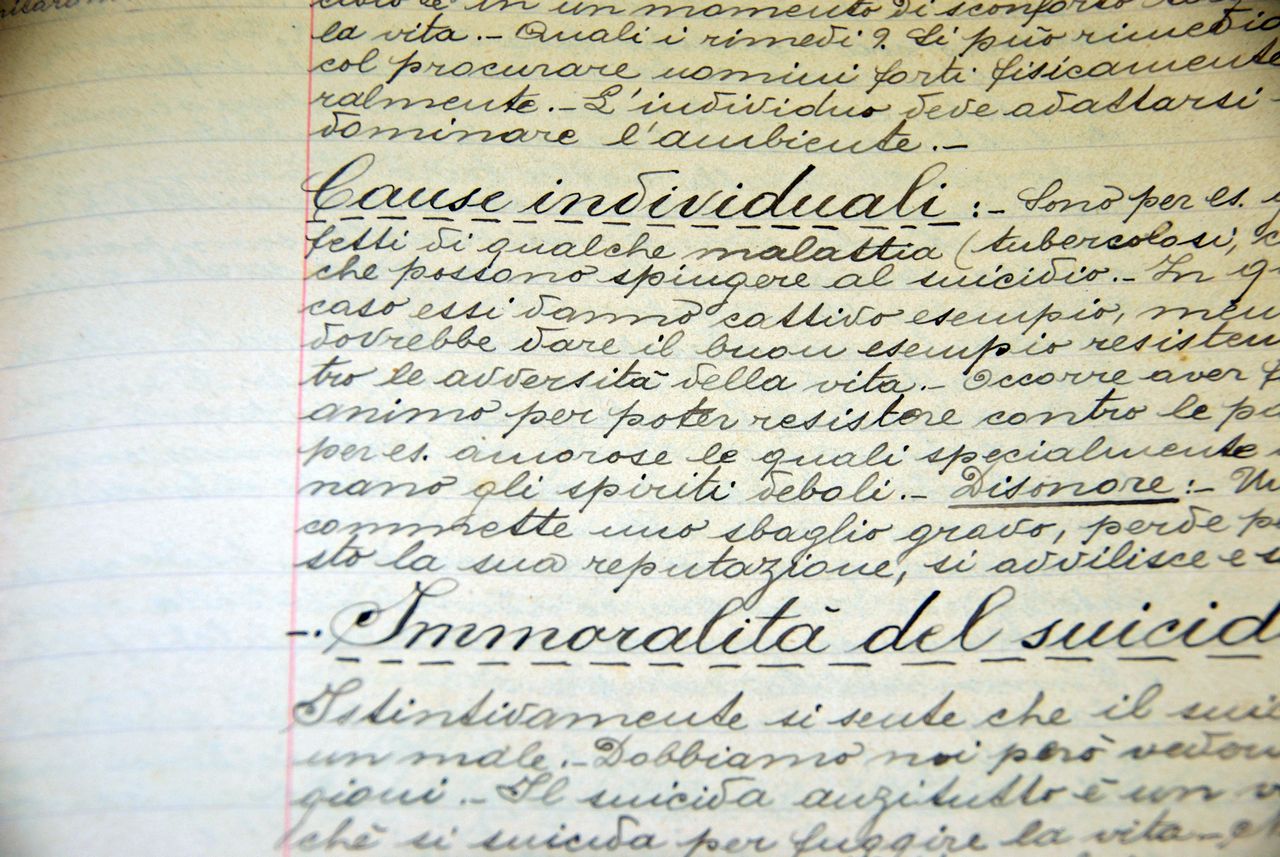 in un momento di sconforto
la vita.- Quali i rimedi? Si può
col procurare uomini forti fisicamente
ralmente.- L'individuo deve adattarsi
dominare l'ambiente.-
Cause individuali :- Sono per es.
fetti di qualche malattia (tubercolosi,
che possono spingere al suicidio.- In
caso essi danno cattivo esempio,
dovrebbe dare il buon esempio resisten
tro le avversità della vita.- Occorre aver
animo per poter resistere contro le
per es. amorose le quali specialmente
nano gli spiriti deboli.- Disonore :-
commette uno sbaglio gravo, perde
sto la sua reputazione, si avvilisce e
-. Immoralità del suicid
Istintivamente si sente che il
un male.- Dobbiamo noi però
gioni.- Il suicida anzitutto è un
chè si suicida per fuggire la vita-